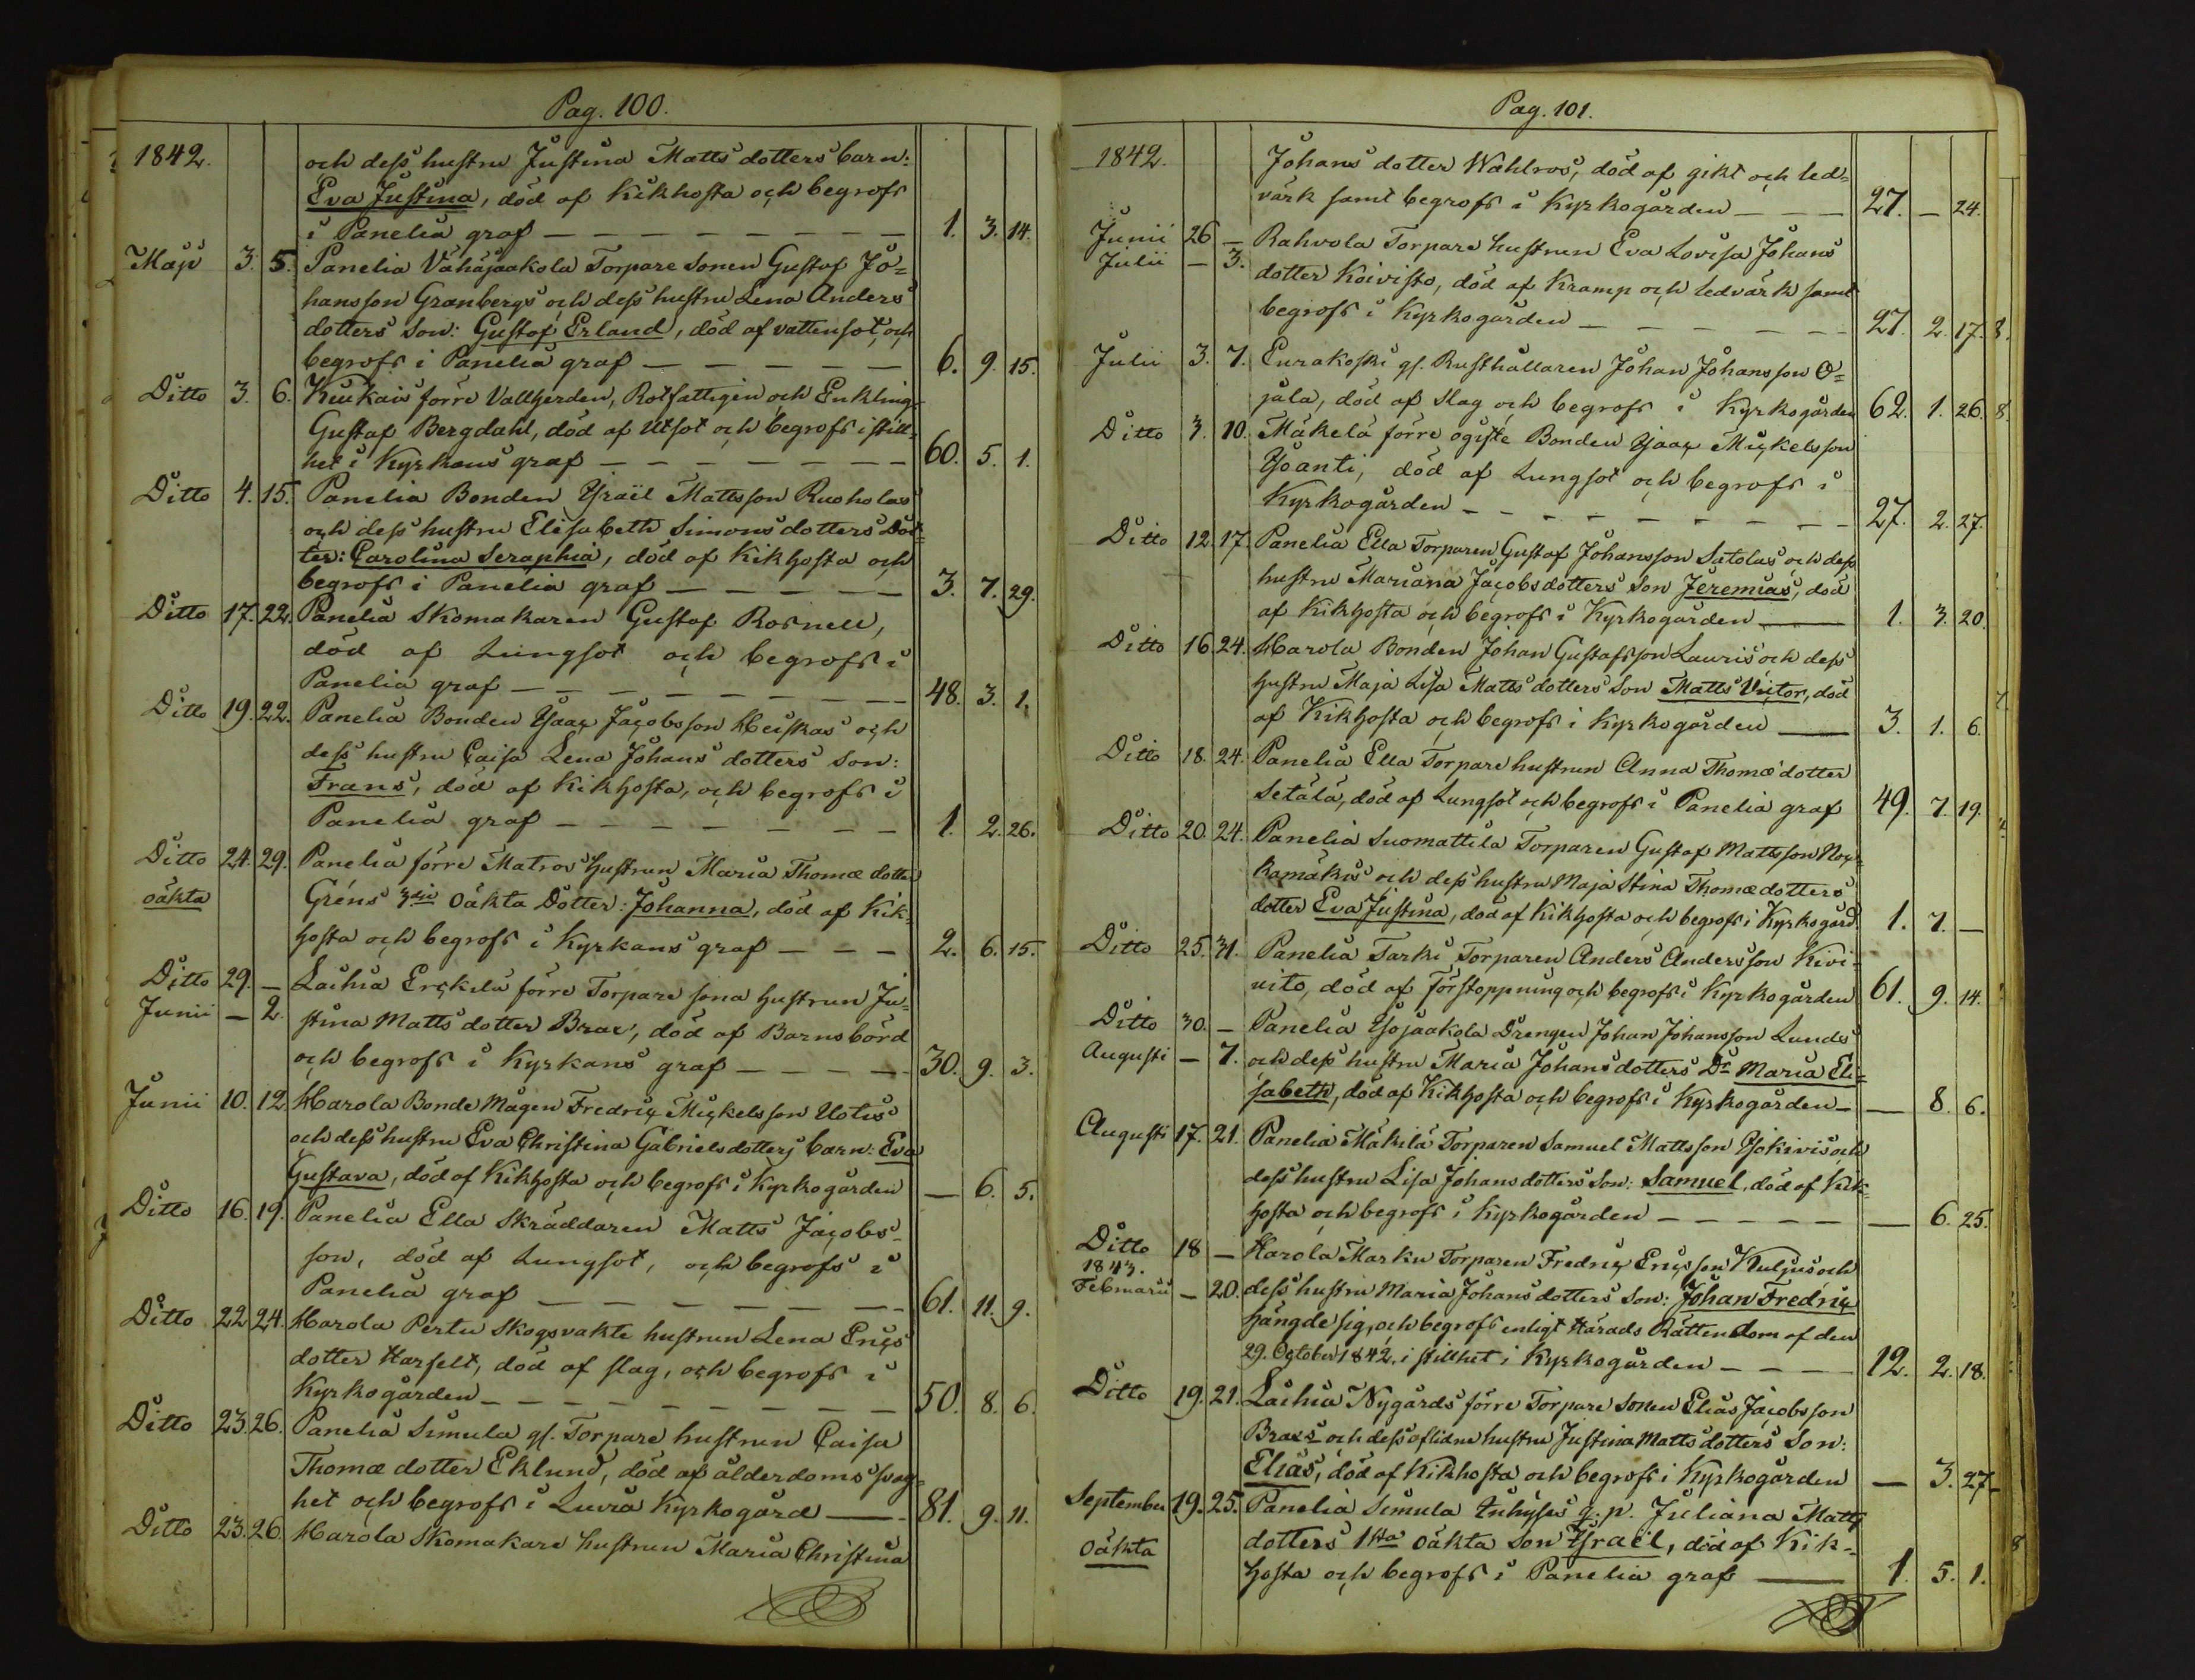 Pag. 100.
1842. och dess hustru Justina Matts dotters barn:
Eva Justina, död af Kikhosta och begrofs
i Panelia graf — — — — — — — — 1. 3. 14.
Maji 3. 5. Panelia Vähäjaakola Torpare Sonen Gustaf Jo-
hansson Granbergs och dess hustru Lena Anders
dotters Son: Gustaf Erland, död af vattensot, och
begrofs i Panelia graf — — — — — 6. 9. 15.
Ditto 3. 6. Kiukais förre Vallherden, Rotfattigen och Enkling
Gustaf Bergdahl, död af Utsot och begrofs i still-
het i Kyrkans graf — — — — — — — 60. 5. 1.
Ditto 4. 15. Panelia Bonden Israël Mattsson Ruoholas
och dess hustru Elisabeth Simons dotters Dot-
ter: Carolina Seraphia, död af Kikhosta och
begrofs i Panelia graf — — — — — 3. 7. 29.
Ditto 17. 22. Panelia Skomakaren Gustaf Rosnell,
död af Lungsot och begrofs i
Panelia graf — — — — — — — — 48. 3. 1.
Ditto 19. 22. Panelia Bonden Isaac Jacobsson Heiskas och
dess hustru Caisa Lena Johans dotters Son:
Frans, död af Kikhosta, och begrofs i
Panelia graf — — — — — — — 1. 2. 26.
Ditto 24. 29. Panelia förre Matros hustrun Maria Thomæ dotter
oäkta Gréns 3dje Oäkta Dotter: Johanna, död af Kik-
hosta och begrofs i Kyrkans graf — — — 2. 6. 15.
Ditto 29. — Laihia Erckilä förre Torpare sona hustrun Ju-
Junii — 2. stina Matts dotter Brax, död af Barnsbörd
och begrofs i Kyrkans graf — — — — 30. 9. 3.
Junii 10. 12. Harola Bonde Mågen Fredric Mickelsson Uotis
och dess hustru Eva Christina Gabrielsdotters barn: Eva
Gustava, död af Kikhosta och begrofs i Kyrkogården — 6. 5.
Ditto 16. 19. Panelia Ella Skräddaren Matts Jacobs-
son, död af Lungsot, och begrofs i
Panelia graf — — — — — — — 61. 11. 9.
Ditto 22 24. Harola Pertu Skogsvakts hustrun Lena Erics
dotter Harselt, död af slag, och begrofs i
Kyrkogården — — — — — — — — 50. 8. 6.
Ditto 23. 26. Panelia Simula gl. Torpare hustrun Caisa
Thomæ dotter Eklund, död af ålderdoms svag-
het och begrofs i Luvia Kyrkogård — 81. 9. 11.
Ditto 23. 26. Harola Skomakare hustrun Maria Christina
Pag. 101.
1842. Johans dotter Wahlros, död af gikt och led-
värk samt begrofs i Kyrkogården — — — 27. — 24.
Junii 26 — Rahvola Torpare hustrun Eva Lovisa Johans
Julii — 3. dotter Koivisto, död af Kramp och ledvärk samt
begrofs i Kyrkogården — — — — — — 27. 2. 17.
Julii 3. 7. Eurakoski gl. Rusthållaren Johan Johansson O-
jala, död af slag och begrofs i Kyrkogården 62. 1. 26.
Ditto 3. 10. Mäkelä förre ogifte Bonden Isaac Mickelsson
Iso anti, död af Lungsot och begrofs i
Kyrkogården — — — — — — — — 27. 2. 27.
Ditto 12 17. Panelia Ella Torparen Gustaf Johansson Satolas och dess
hustru Mariana Jacobsdotters Son Jeremias, död
af Kikhosta och begrofs i Kyrkogården — 1. 3. 20.
Ditto 16 24. Harola Bonden Johan Gustafsson Lauris och dess
hustru Maja Lisa Matts dotters Son Matts Victor, död
af Kikhosta och begrofs i Kyrkogården — 3. 1. 6.
Ditto 18. 24. Panelia Ella Torpare hustrun Anna Thomæ dotter
Setälä, död af Lungsot och begrofs i Panelia graf 49. 7. 19.
Ditto 20. 24. Panelia Suomattila Torparen Gustaf Mattsson
och dess hustru Maja Stina Thomædotters
dotter Eva Justina, död af Kikhosta och begrofs i Kyrkogård. 1. 7. —
Ditto 25. 31. Panelia Tarki Torparen Anders Andersson Kivi-
nito, död af Förstoppning och begrofs i Kyrkogården 61. 9. 14.
Ditto 30. — Panelia Isojaakola Drengen Johan Johansson Lunds
Augusti — 7. och dess hustru Maria Johansdotters Dr Maria Eli-
sabeth, död af Kikhosta och begrofs i Kyrkogården — — 8. 6.
Augusti 17. 21. Panelia Mäkilä Torparen Samuel Mattsson Isokivis och
dess hustru Lisa Johansdotters Son: Samuel, död af Kik-
hosta och begrofs i Kyrkogården — — — — — — 6. 25.
Ditto 18 — Harola Marku Torparen Fredric Ericsson Kuljus och
1843.
Februarii — 20. dess hustru Maria Johansdotters Son: Johan Fredric
hängde sig, och begrofs enligt Härads Rättens Dom af den
29. October 1842, i stillhet i Kyrkogården — — — 12. 2. 18.
Ditto 19. 21. Laihia Nygårds förre Torpare Sonen Elias Jacobsson
Braxs och dess aflidne hustru Justina Mattsdotters Son:
Elias, död af Kikhosta och begrofs i Kyrkogården — 3. 27.
September 19. 25. Panelia Simula Inhyses q. p. Juliana Matts
oäkta dotters 1sta Oäkta Son Israël, död af Kik-
hosta och begrofs i Panelia graf — 1. 5. 1.